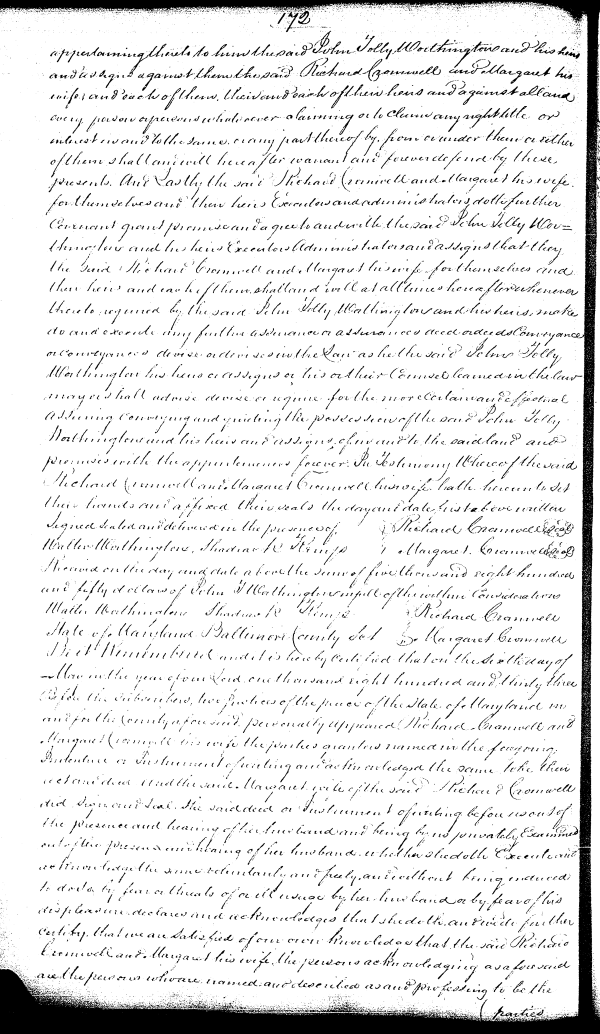 172
appertaining thereto to him the said John Tolly Worthington and his heirs
and assigns against them the said Richard Cromwell and Margaret his
wife and each of them, their and each of their heirs and against all and
every person or persons whatsoever claiming or to claim any right title or
interest in and to the same, or any part thereof by, from or under them or either
of them shall and will hereafter warrant and forever defend by these
presents. And Lastly the said Richard Cromwell and Margaret his wife
for themselves and their heirs Executors and administrators, doth further
Covenant grant promise and agree to and with the said John Tolly Wor=
thington and his heirs Executors Administrators and assigns that they
the said Richard Cromwell and Margaret his wife for themselves and
their heirs and each of them, shall and will at all times hereafter whenever
thereto required by the said John Tolly Worthington and his heirs, make
do and execute any further assurance or assurances deed or deeds Conveyance
or Conveyances devise or devises in the Law as he the said John Tolly
Worthington his heirs or assigns or his or their Counsel learned in the law
may or shall advise devise or require for the more Certain and effectual
assuring Conveying and quieting the possession of the said John Tolly
Worthington and his heirs and assigns, of in and to the said land and
premises with the appurtenances forever. In Testimony Whereof the said
Richard Cromwell and Margaret Cromwell his wife hath hereunto set
their hands and affixed their seals the day and date first above written
Signed Sealed and delivered in the presence of Richard Cromwell Seal
Walter Worthington, Shadrach Kemp Margaret Cromwell Seal
Received on the day and date above the sum of five thousand eight hundred
and fifty dollars of John T Worthington in full of the within Considerations
Walter Worthington Shadrach Kemp Richard Cromwell
State of Maryland Baltimore County Sct Margaret Cromwell
Be it Remembered and it is hereby Certified that on the sixth day of
May in the year of our Lord one thousand eight hundred and thirty three
Before the Subscribers, two Justices of the peace of the State of Maryland in
and for the County aforesaid, personally appeared Richard Cromwell and
Margaret Cromwell his wife the parties grantors named in the foregoing
Indenture or Instrument of writing and acknowledged the same to be their
act and deed and the said Margaret wife of the said Richard Cromwell
did sign and Seal the said deed or Instrument of writing before us out of
the presence and hearing of her husband and being by us privately Examined
out of the presence and hearing of her husband whether she doth Execute and
acknowledge the same voluntarily and freely, and without being induced
to do so by fear or threats of or ill usage by her husband or by fear of his
displeasure declares and acknowledges that she doth, and we do further
Certify, that we are Satisfied of our own knowledge that the said Richard
Cromwell and Margaret his wife, the persons acknowledging as aforesaid
are the persons who are named and described as and professing to be the
parties